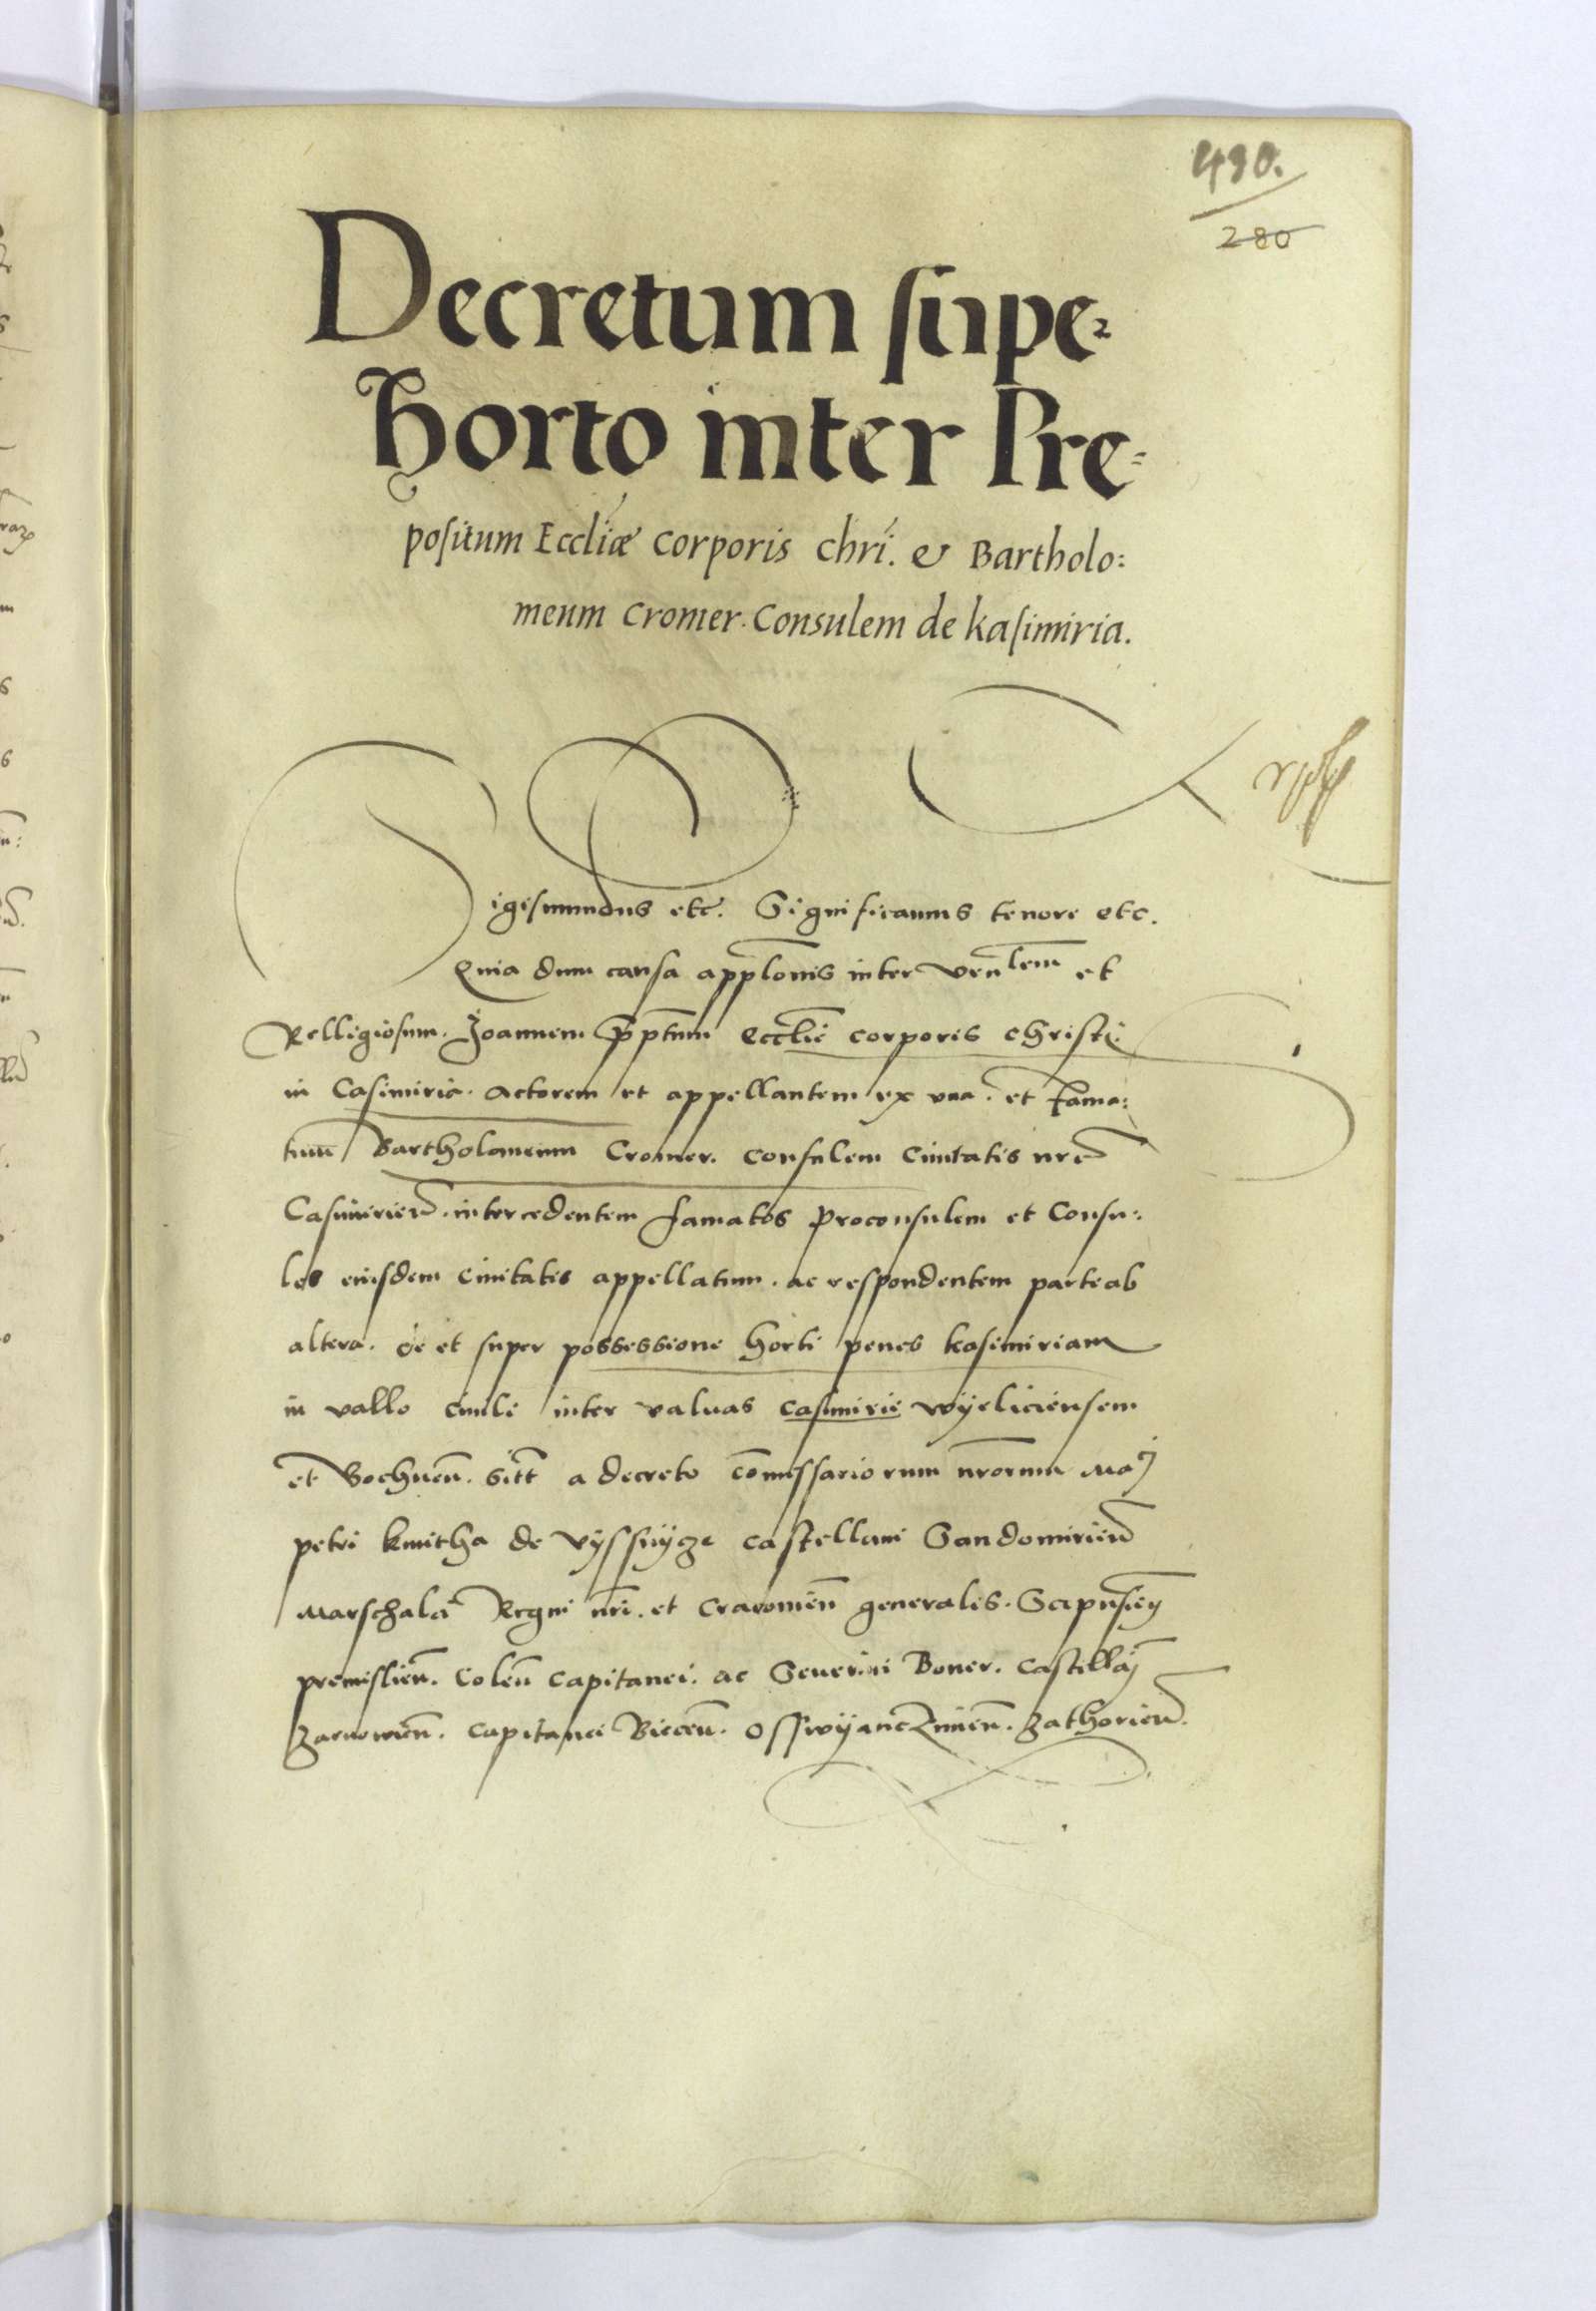 490.
280
Decretum supe2
horto inter Pre=
positum Eccliæ Corporis chri. & Bartholo:
meum Cromer. Consulem de kasimiria.
Sigismundus etc. Significamus tenore etc.
Quia dum causa applonis inter venlem et
Relligiosum. Joannem pptum ecclie corporis christi
in Casimiria. actorem et appellantem ex vna. et fama:
tum Bartholomeum Cromer. consulem Ciuitatis nre
Casimirien. intercedentem famatos proconsulem et Consu:
les eiusdem Ciuitatis appellatum. ac respondentem parte ab
altera. de et super possessione horti penes kasimiriam
in vallo Ciuili inter valuas casimirie wijeliciensem
et Bochnen. sitt a decreto comissariorum nrorum Maj
petri kmitha de vijssnijcze castellani Sandomirien
Marschalci Regni nri. et Cracouien generalis. Scepusien
premislien. Colen capitanei. ac Seuerini Boner. castellaj
zarnowien. capitanei Biecen. osswijanczimen. zathorien.